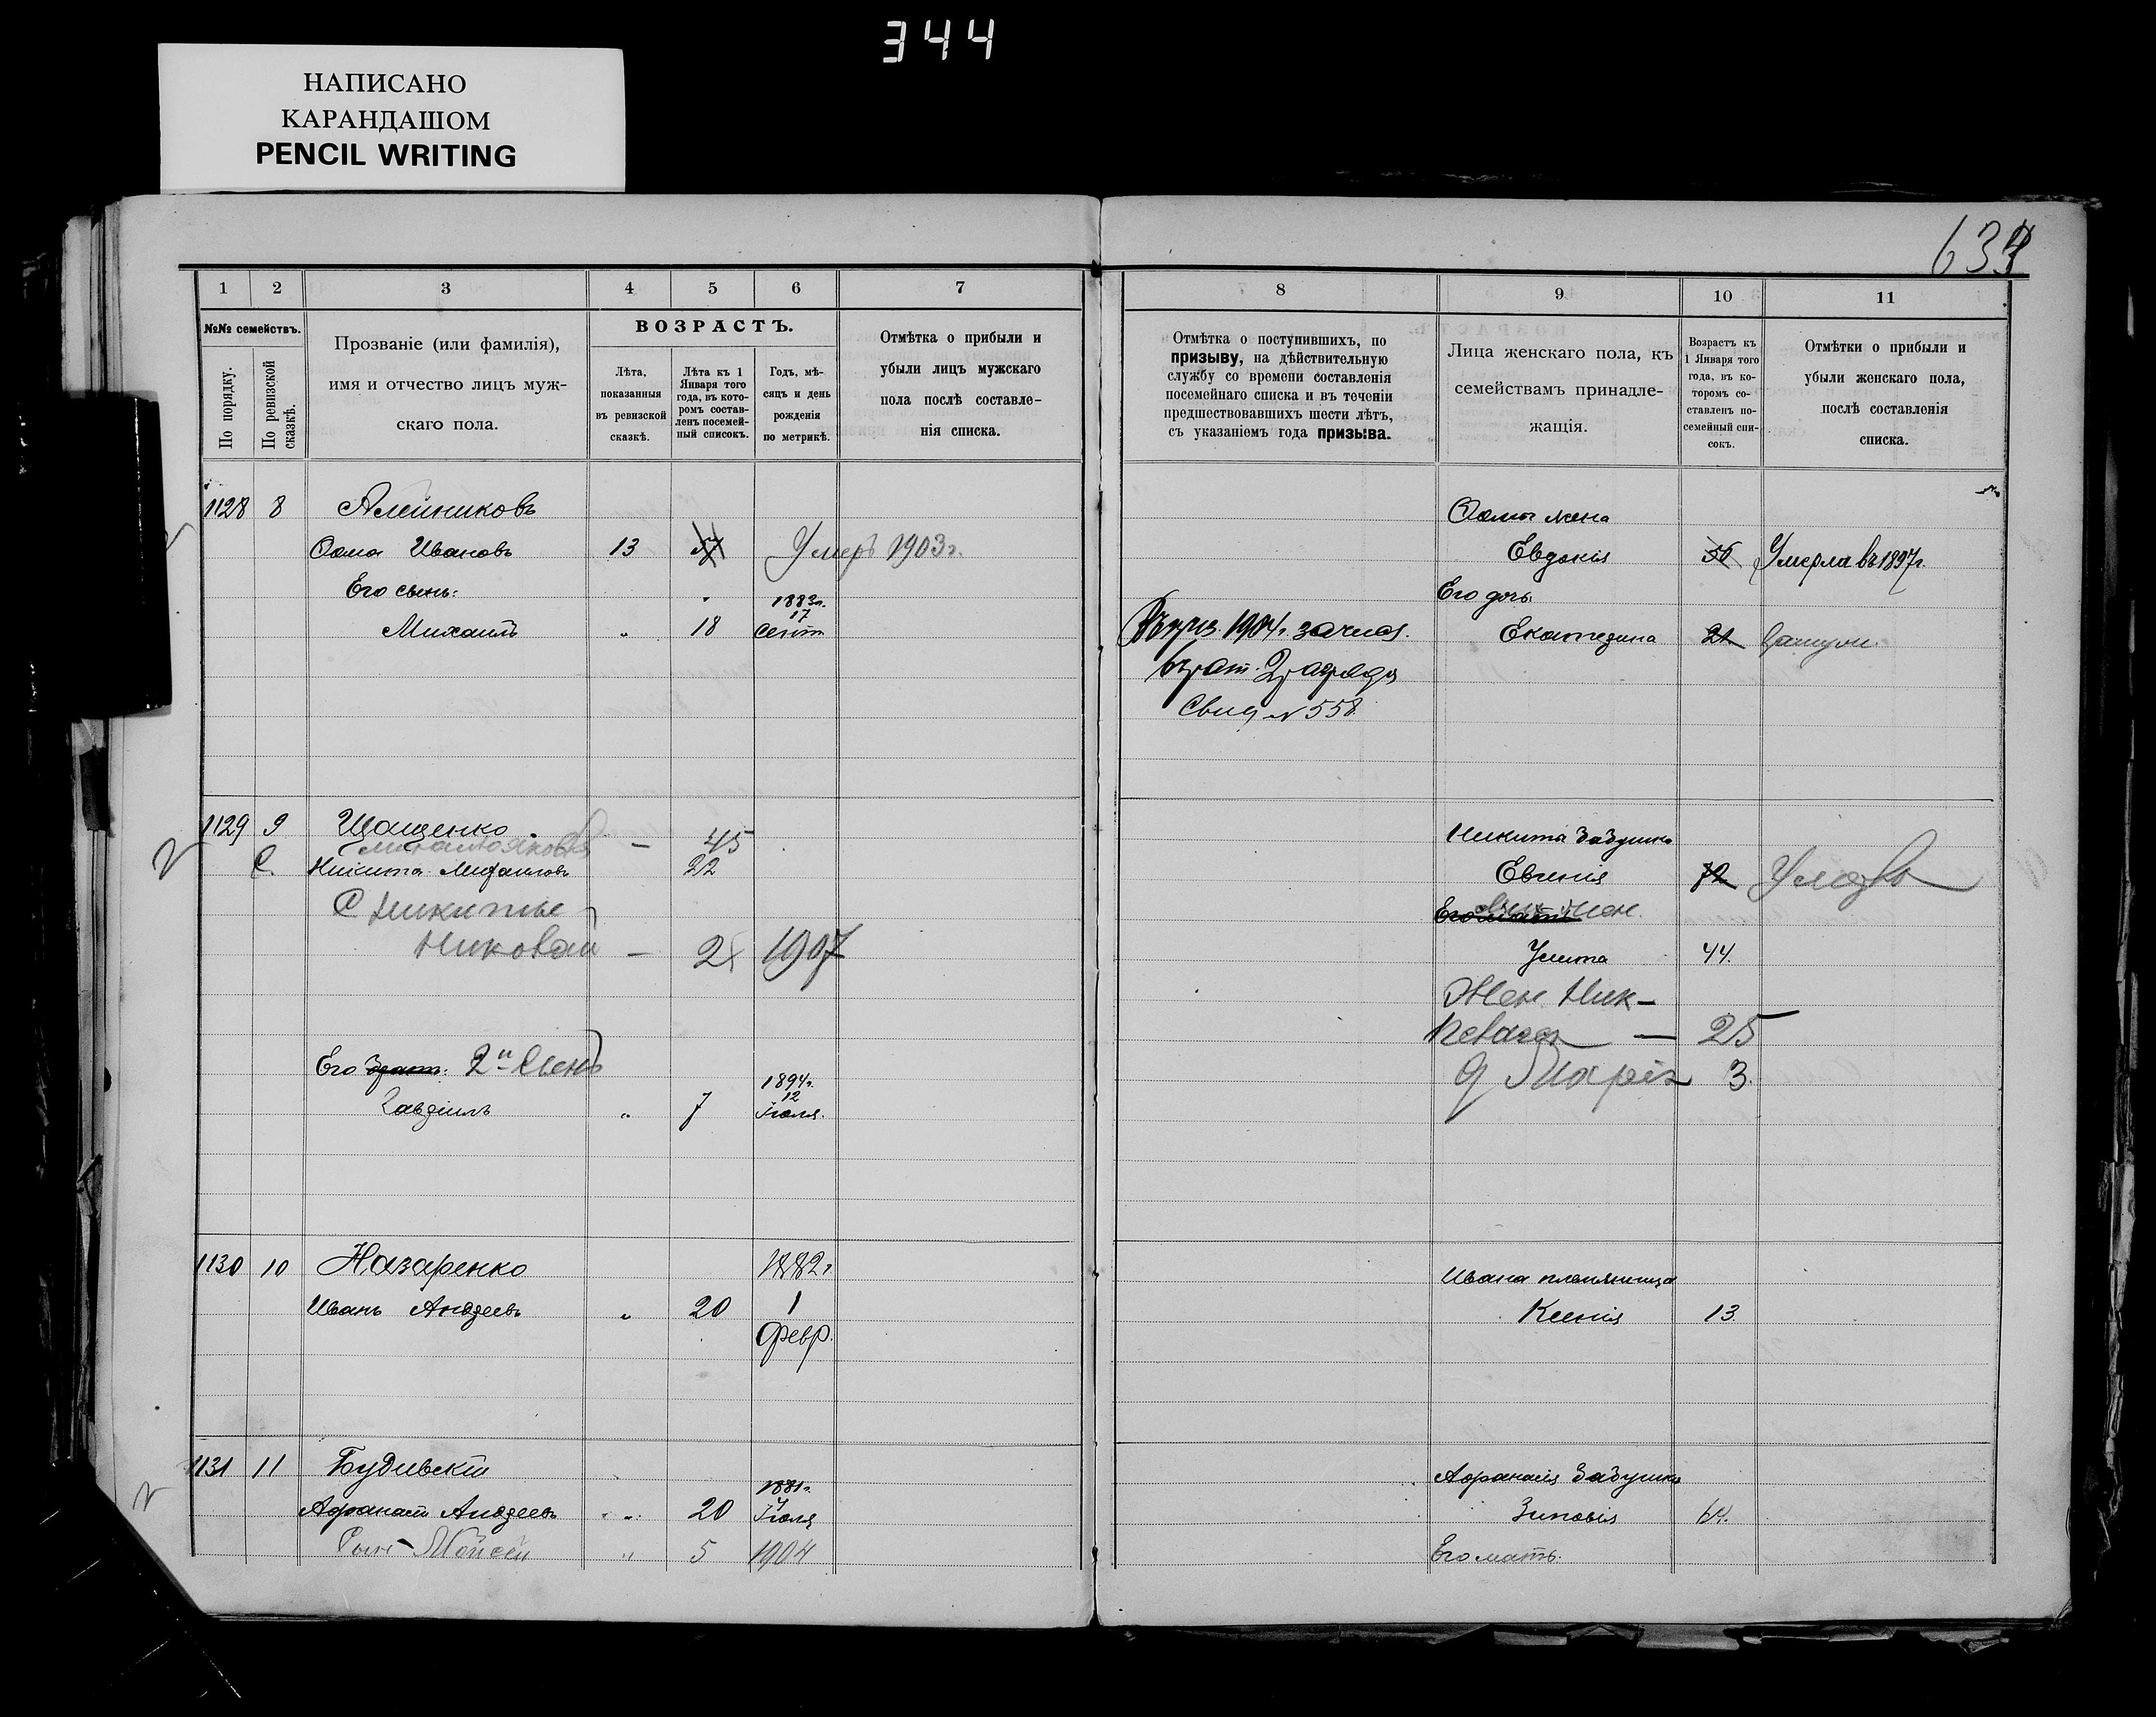 344
НАПИСАНО
КАРАНДАШОМ
PENCIL WRITING
1
2
3
4
5
6
7
№№ семействъ.
По порядку.
По ревизской сказкѣ.
Прозваніе (или фамилія),
имя и отчество лицъ муж-
скаго пола.
ВОЗРАСТЪ.
Лѣта,
показанныя
въ ревизской
сказкѣ.
Лѣта къ 1
Января того
года, въ кото-
ромъ состав-
ленъ посемей-
ный списокъ.
Годъ, мѣ-
сяцъ и день
рожденія
по метрикѣ.
Отмѣтка о прибыли и
убыли лицъ мужскаго
пола послѣ составле-
нія списка.
1128 8 Алейниковъ
Ѳома Ивановъ 13 Умеръ 1903г.
Его сынъ:
1883г.
17
Михаилъ „ 18 Сент.
1129 9 Цащенко
— 45
Никита Михаиловъ 22
С Никитъе
Николай — 1907
Его братъ: 2й Сынъ
1894г.
12
Гавріилъ „ 7 Іюля.
1130 10 Назаренко 1882г
Иванъ Андреевъ „ 20 1
Февр.
1131 11 Будивскій
1881г.
4
Афанасій Андреевъ „ 20 Іюля
Сынъ Мойсей „ 5 1904
8
9
10
11
Отмѣтка о поступившихъ, по
призыву, на дѣйствительную
службу со времени составленія
посемейнаго списка и въ теченіи
предшествовавшихъ шести лѣтъ,
съ указаніемъ года призыва.
Лица женскаго пола, къ
семействамъ принадле-
жащія.
Возрастъ къ
1 Января того
года, въ ко-
торомъ со-
ставленъ по-
семейный спи-
сокъ.
Отмѣтки о прибыли и
убыли женскаго пола,
послѣ составленія
списка.
Ѳомы жена
Евдокія 56 Умерла въ 1897г.
Его дочь
Въ приз. 1904г. зачисл. Екатерина 21 Замуж.
въ рат. 2 разряда
Свид № 558
Никита бабушка
Евгенія 72
Его мать
Улита 44.
Жен. Ник-
— 25
д Марія 3.
Ивана племяница
Ксенія 13.
Афанасія бабушка
Зиновія 64.
Его мать.